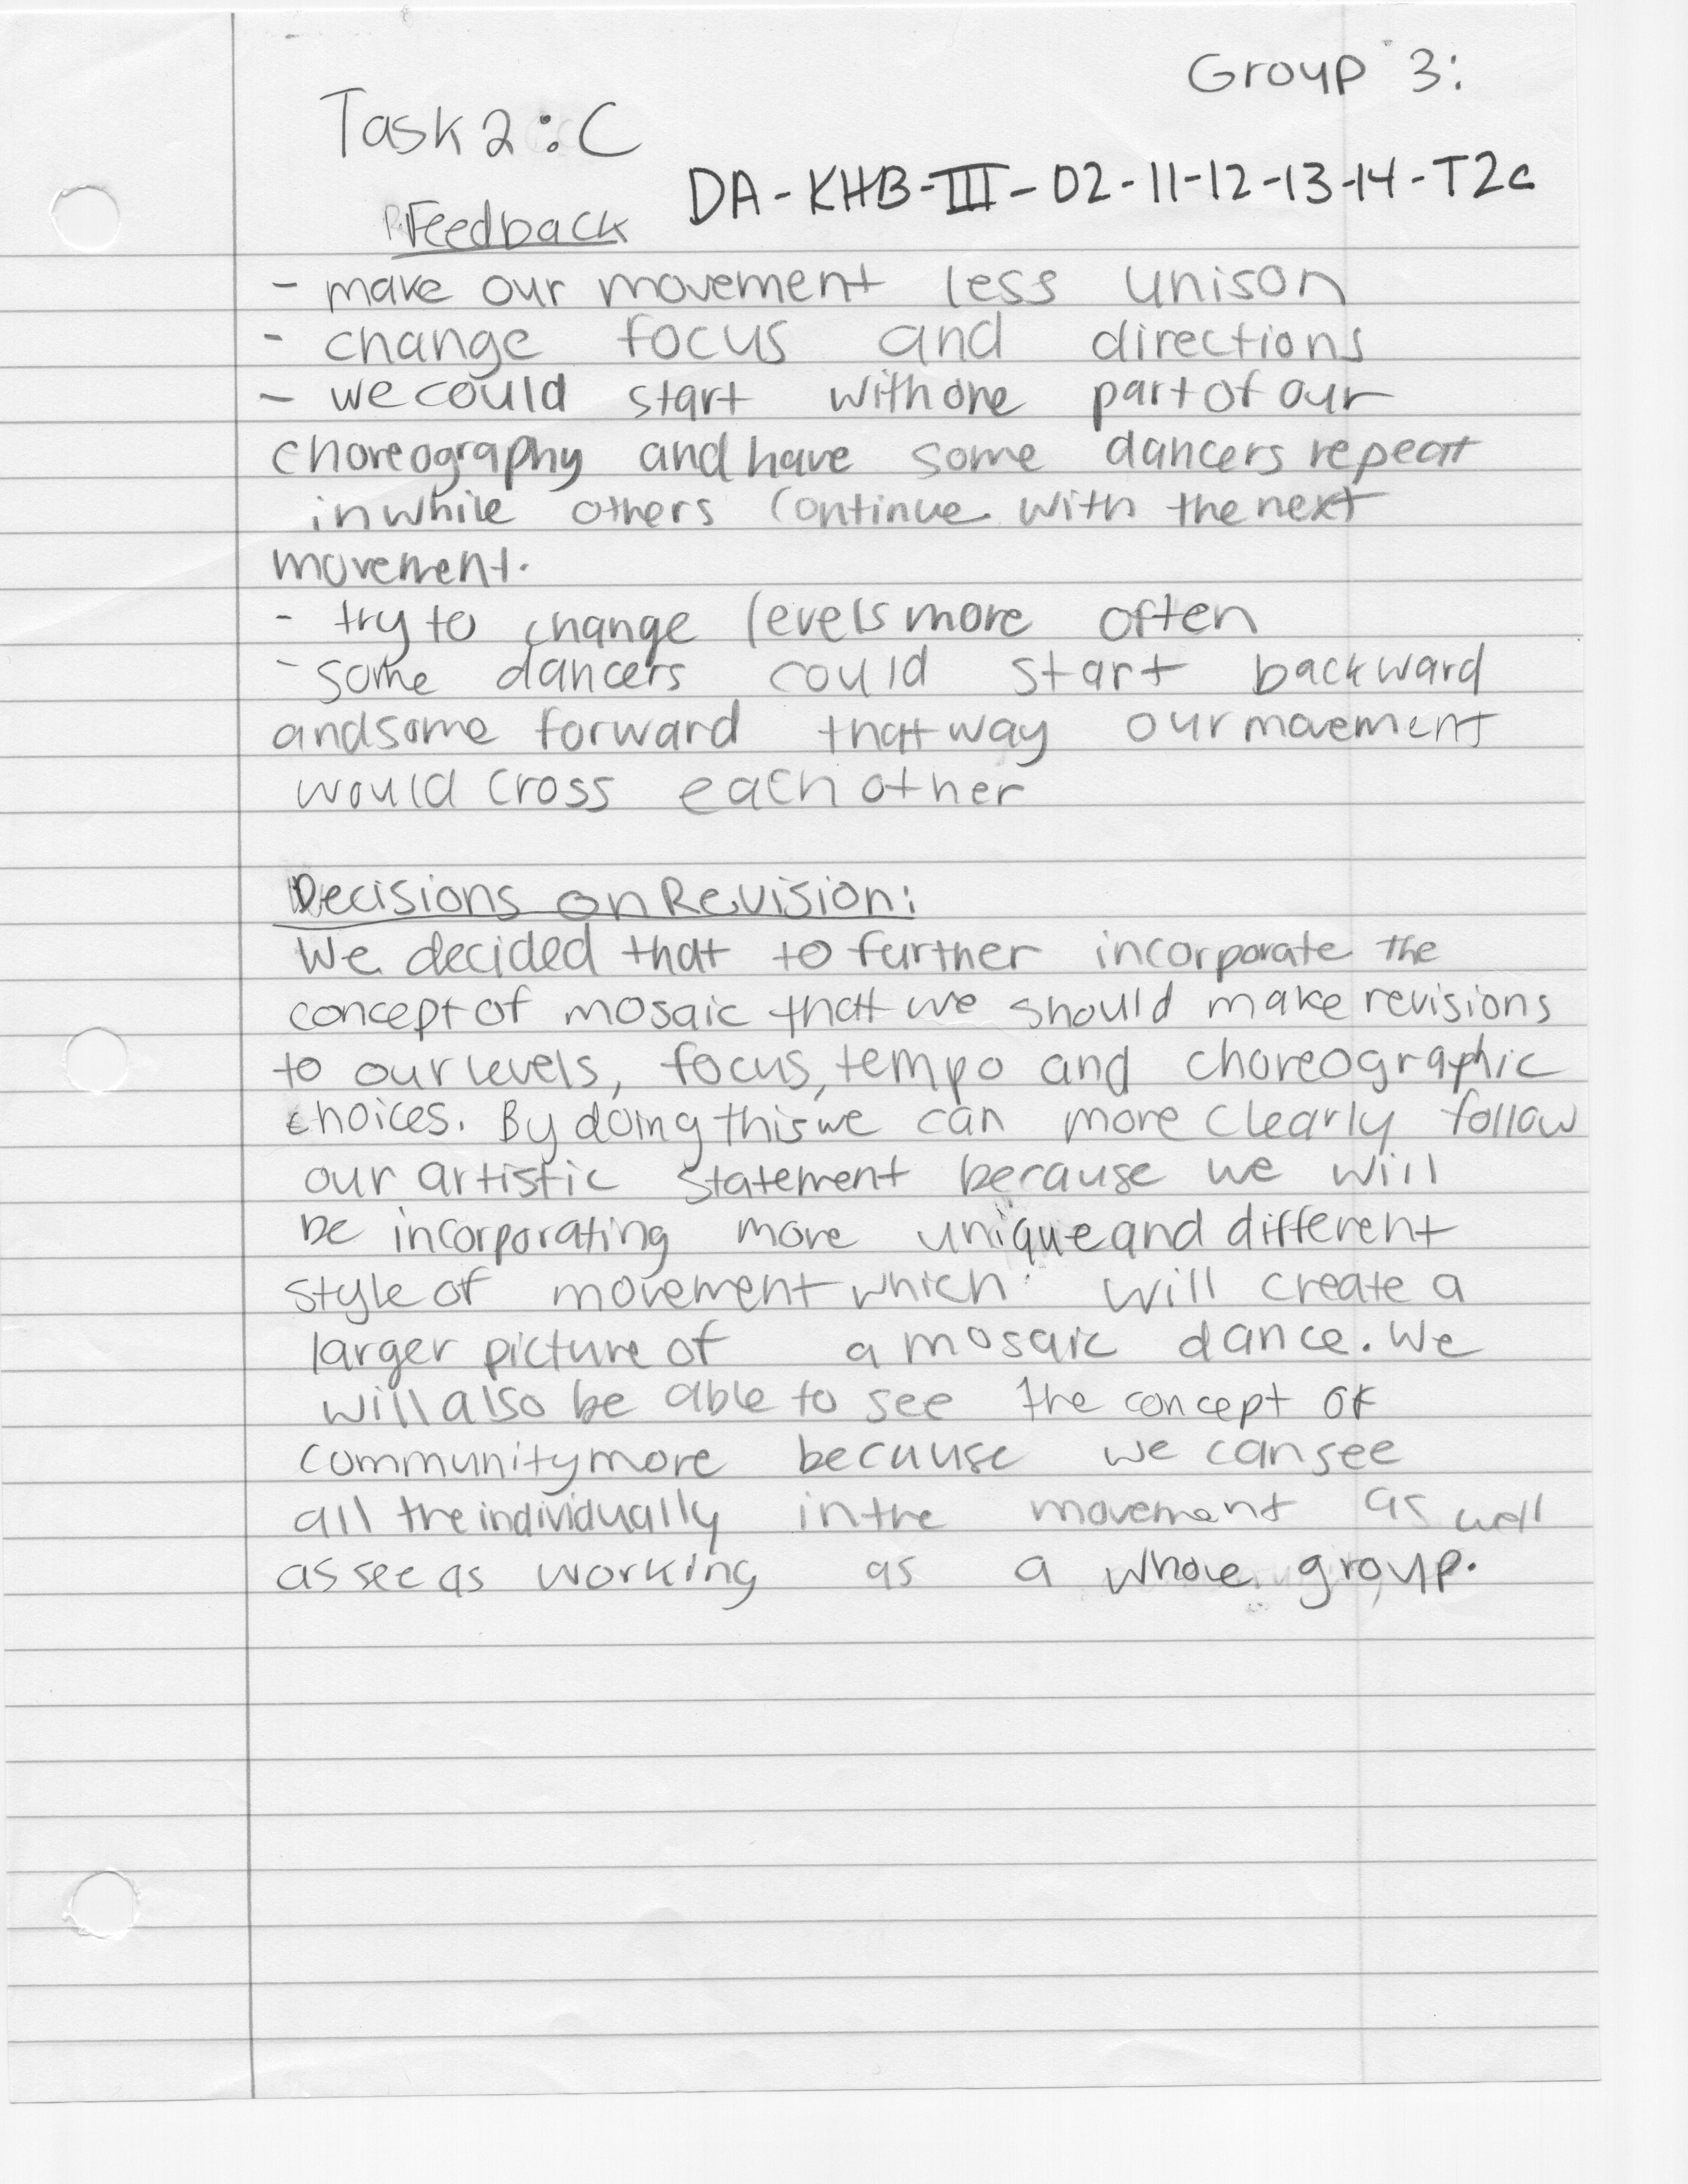 Group 3:
Task 2: C
DA-KHB-III-02-11-12-13-14-T2c
Feedback
- make our movement less unison
- change focus and directions
- we could start with one part of our
choreography and have some dancers repeat
in while others continue with the next
movement.
- try to change levels more often
- some dancers could start backward
and some forward that way our movement
would cross each other
Decisions on Revision:
We decided that to further incorporate the
concept of mosaic that we should make revisions
to our levels, focus, tempo and choreographic
choices. By doing this we can more clearly follow
our artistic statement because we will
be incorporating more unique and different
style of movement which will create a
larger picture of a mosaic dance. We
will also be able to see the concept of
community more because we can see
all the individually in the movement as well
as see as working as a whole group.